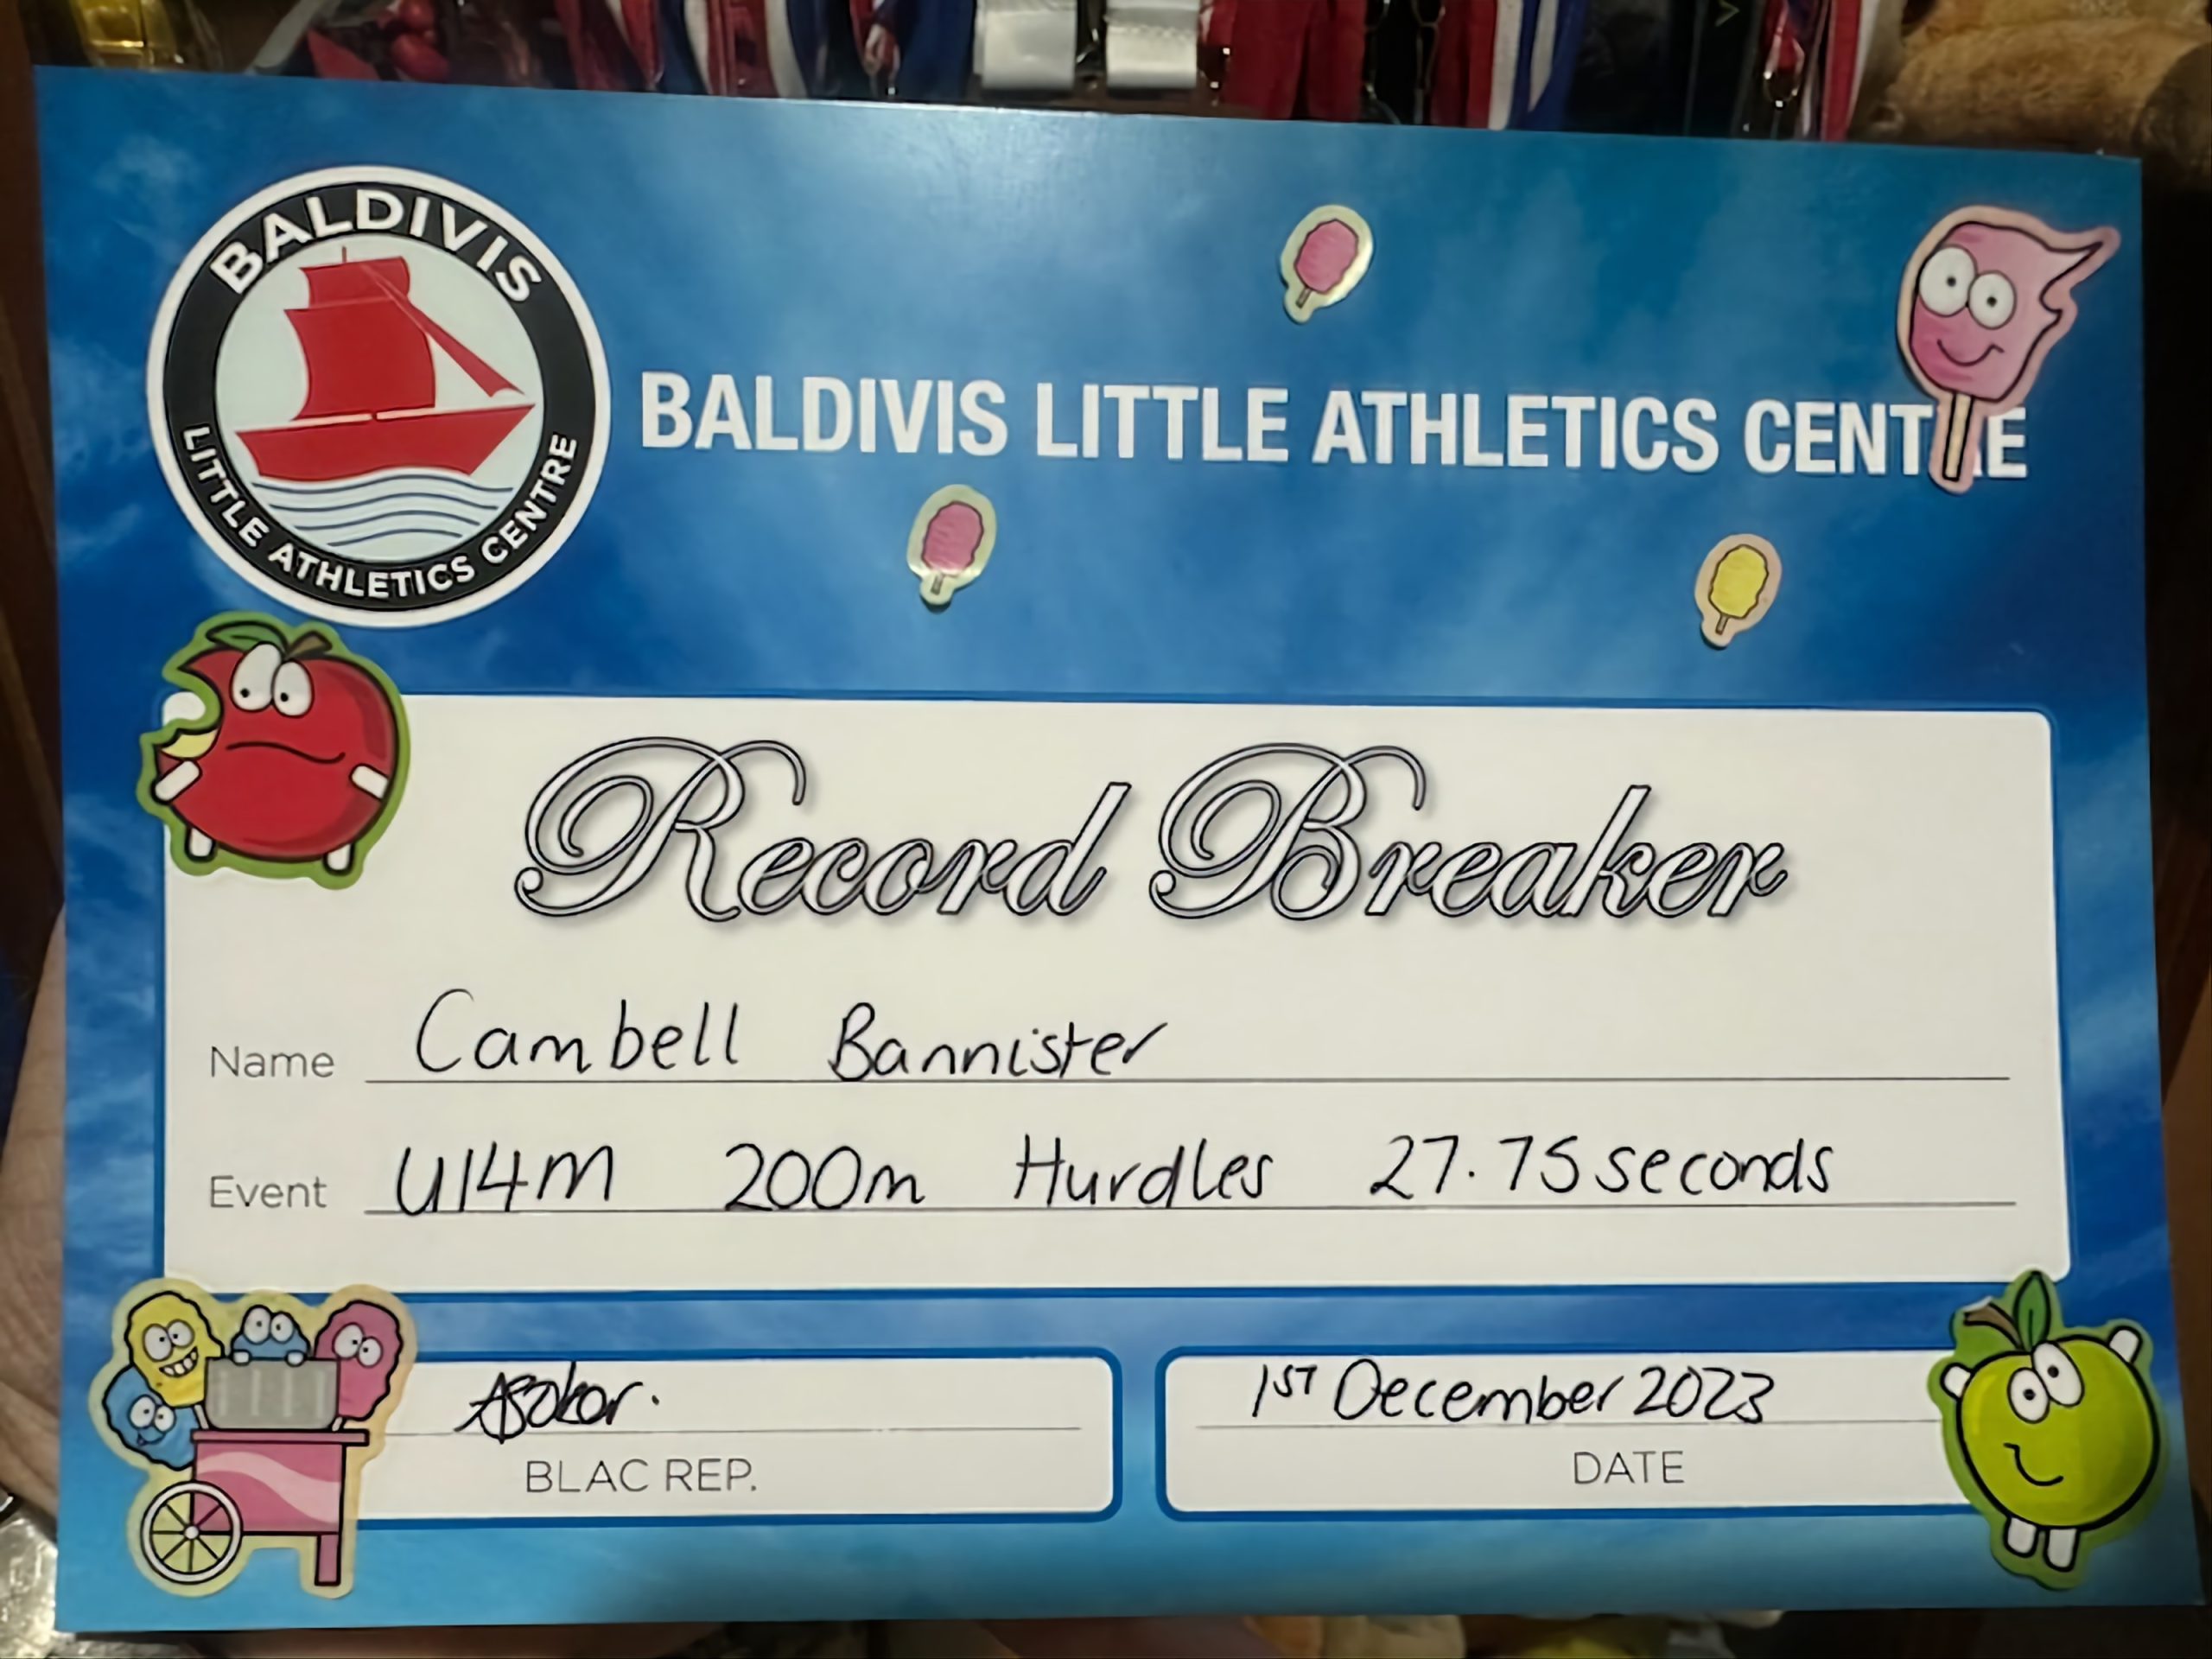 BALDIVIS
LITTLE ATHLETICS CENTRE
BALDIVIS LITTLE ATHLETICS CENTRE
Record Breaker
Name Cambell Bannister
Event U14M 200m Hurdles 27.75 seconds
1ST December 2023
BLAC REP.
DATE